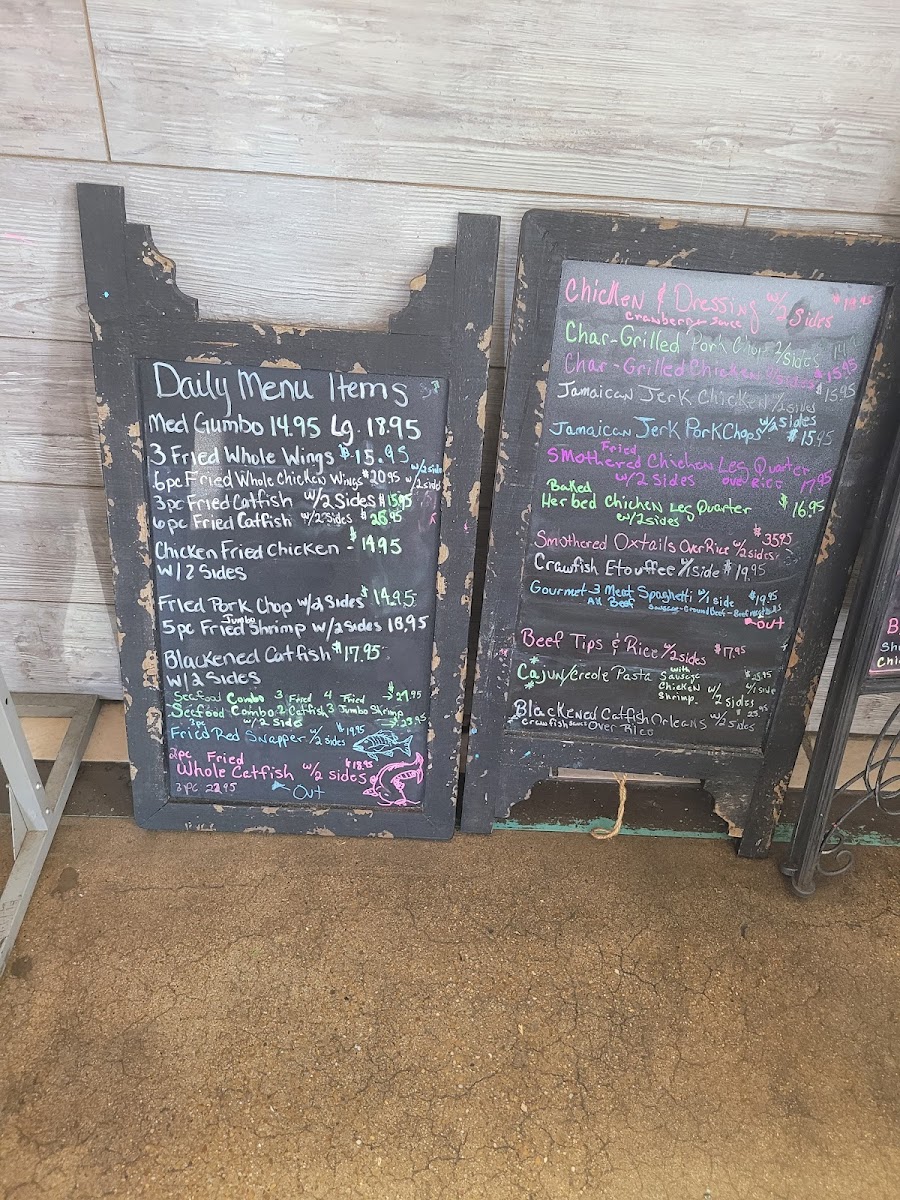 Daily Menu Items
Med Gumbo 14.95 Lg. 18.95
3 Fried Whole Wings $15.95 w/2 side
6pc Fried Whole Chicken Wings $20.95 w/2 side
3pc Fried Catfish w/2 Sides $15.95
6pc Fried Catfish w/2 Sides $25.95
Chicken Fried Chicken - $14.95
W/2 Sides
Fried Pork Chop w/2 Sides $14.95
5pc Fried Jumbo Shrimp w/2 sides 18.95
Blackened Catfish $17.95
W/2 Sides
Seafood Combo 3 Fried 4 Fried
Seafood Combo 2 Catfish 3 Jumbo Shrimp
w/2 Side
3pc
Fried Red Snapper w/2 sides $19.95
2pc Fried
Whole Catfish w/2 sides $18.95
3pc 22.95
Out
Chicken & Dressing w/2 Sides
Cranberry Sauce
Char-Grilled Pork Chop 2/sides
Char-Grilled Chicken 2/sides $15.95
Jamaican Jerk Chicken 2/sides $15.95
Jamaican Jerk Pork Chops w/2 sides $15.95
Fried
Smothered Chicken Leg Quarter
w/2 sides over Rice 17.95
Baked
Herbed Chicken Leg Quarter $16.95
w/2 sides
Smothered Oxtails Over Rice w/2 sides $35.95
Crawfish Etouffee w/1 side $19.95
Gourmet 3 Meat Spaghetti w/1 side $19.95
All Beef Sausage-Ground Beef-
out
Beef Tips & Rice w/2 sides $17.95
Cajun/Creole Pasta with Sausage
Chicken w/
Shrimp 2 sides
Blackened Catfish Orleans w/2 sides
Crawfish Over Rice